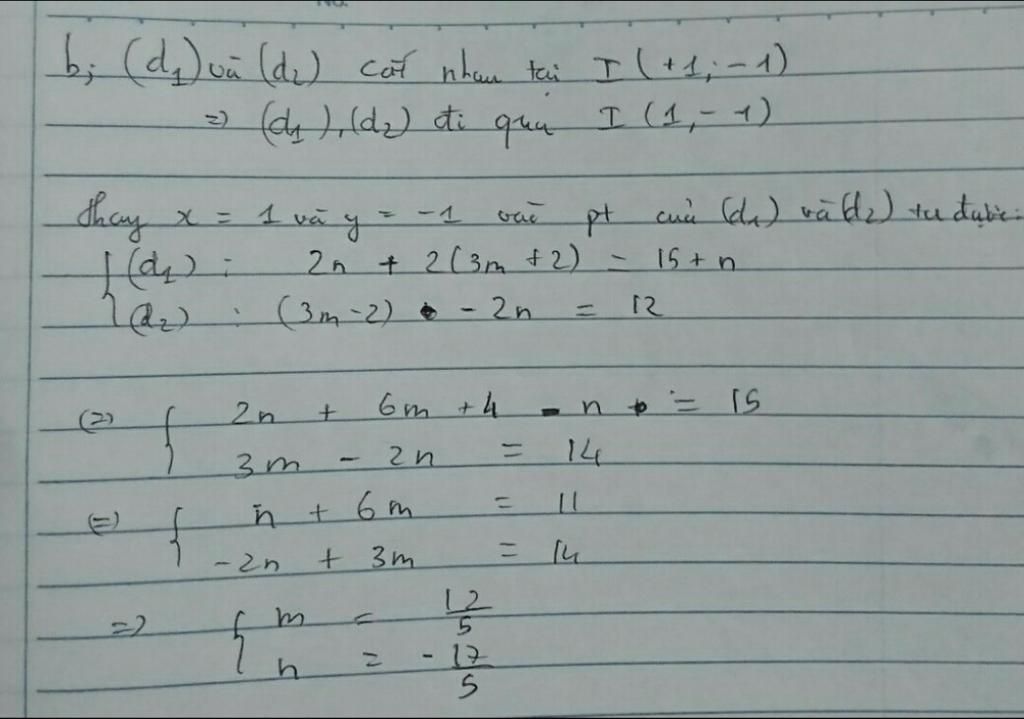 b; (d₁) và (d₂) cắt nhau tại I (+1; -1)
=> (d₁), (d₂) đi qua I (1, -1)
thay x = 1 và y = -1 vào pt của (d₁) và (d₂) ta được:
{ (d₁) : 2n + 2(3m + 2) = 15 + n
(d₂) : (3m - 2) - 2n = 12
(=) { 2n + 6m + 4 - n = 15
3m - 2n = 14
(=) { n + 6m = 11
-2n + 3m = 14
=> { m = 12/5
n = -17/5